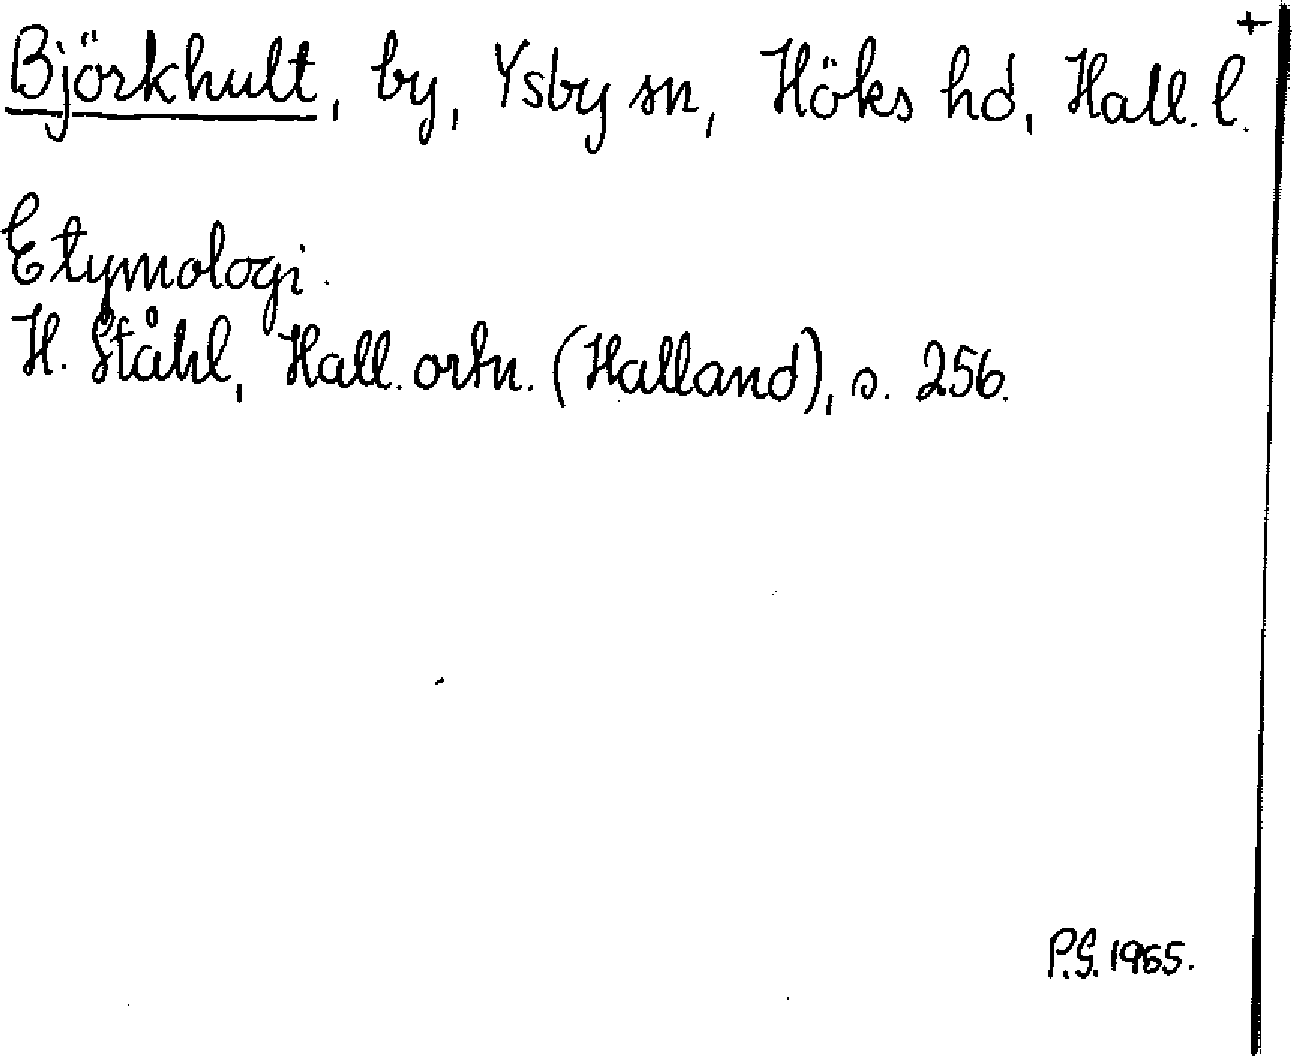 Björkhult, by, Ysby sn, Höks hd, Hall. l. +
Etymologi.
H. Ståhl, Hall. ortn. (Halland), s. 256.
P.G. 1965.